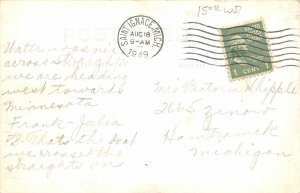 150R WS
POST CARD
SAINT IGNACE, MICH.
AUG 18
9-AM
1949
1 CENT
Water was nice
across straights
we are heading
west towards
Minnesota
Frank - Julia
P.S. Thats the boat
we crossed the
straights on
Mrs Victoria Whipple
2665
Hamtramck
Michigan